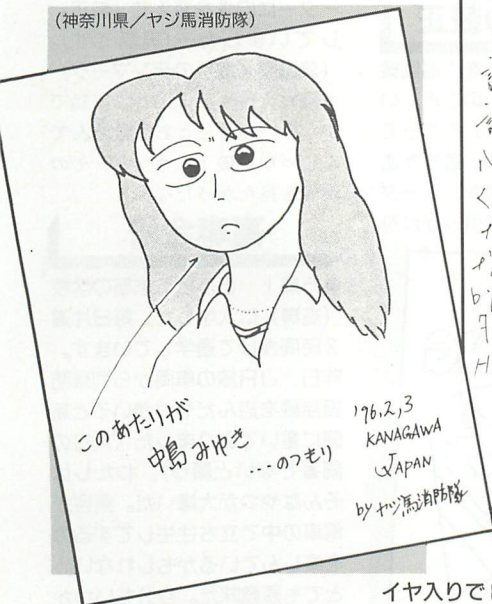 （神奈川県／ヤジ馬消防隊）
このあたりが
中島みゆき
…のつもり
'96,2,3
KANAGAWA
JAPAN
by ヤジ馬消防隊
イヤ入りで